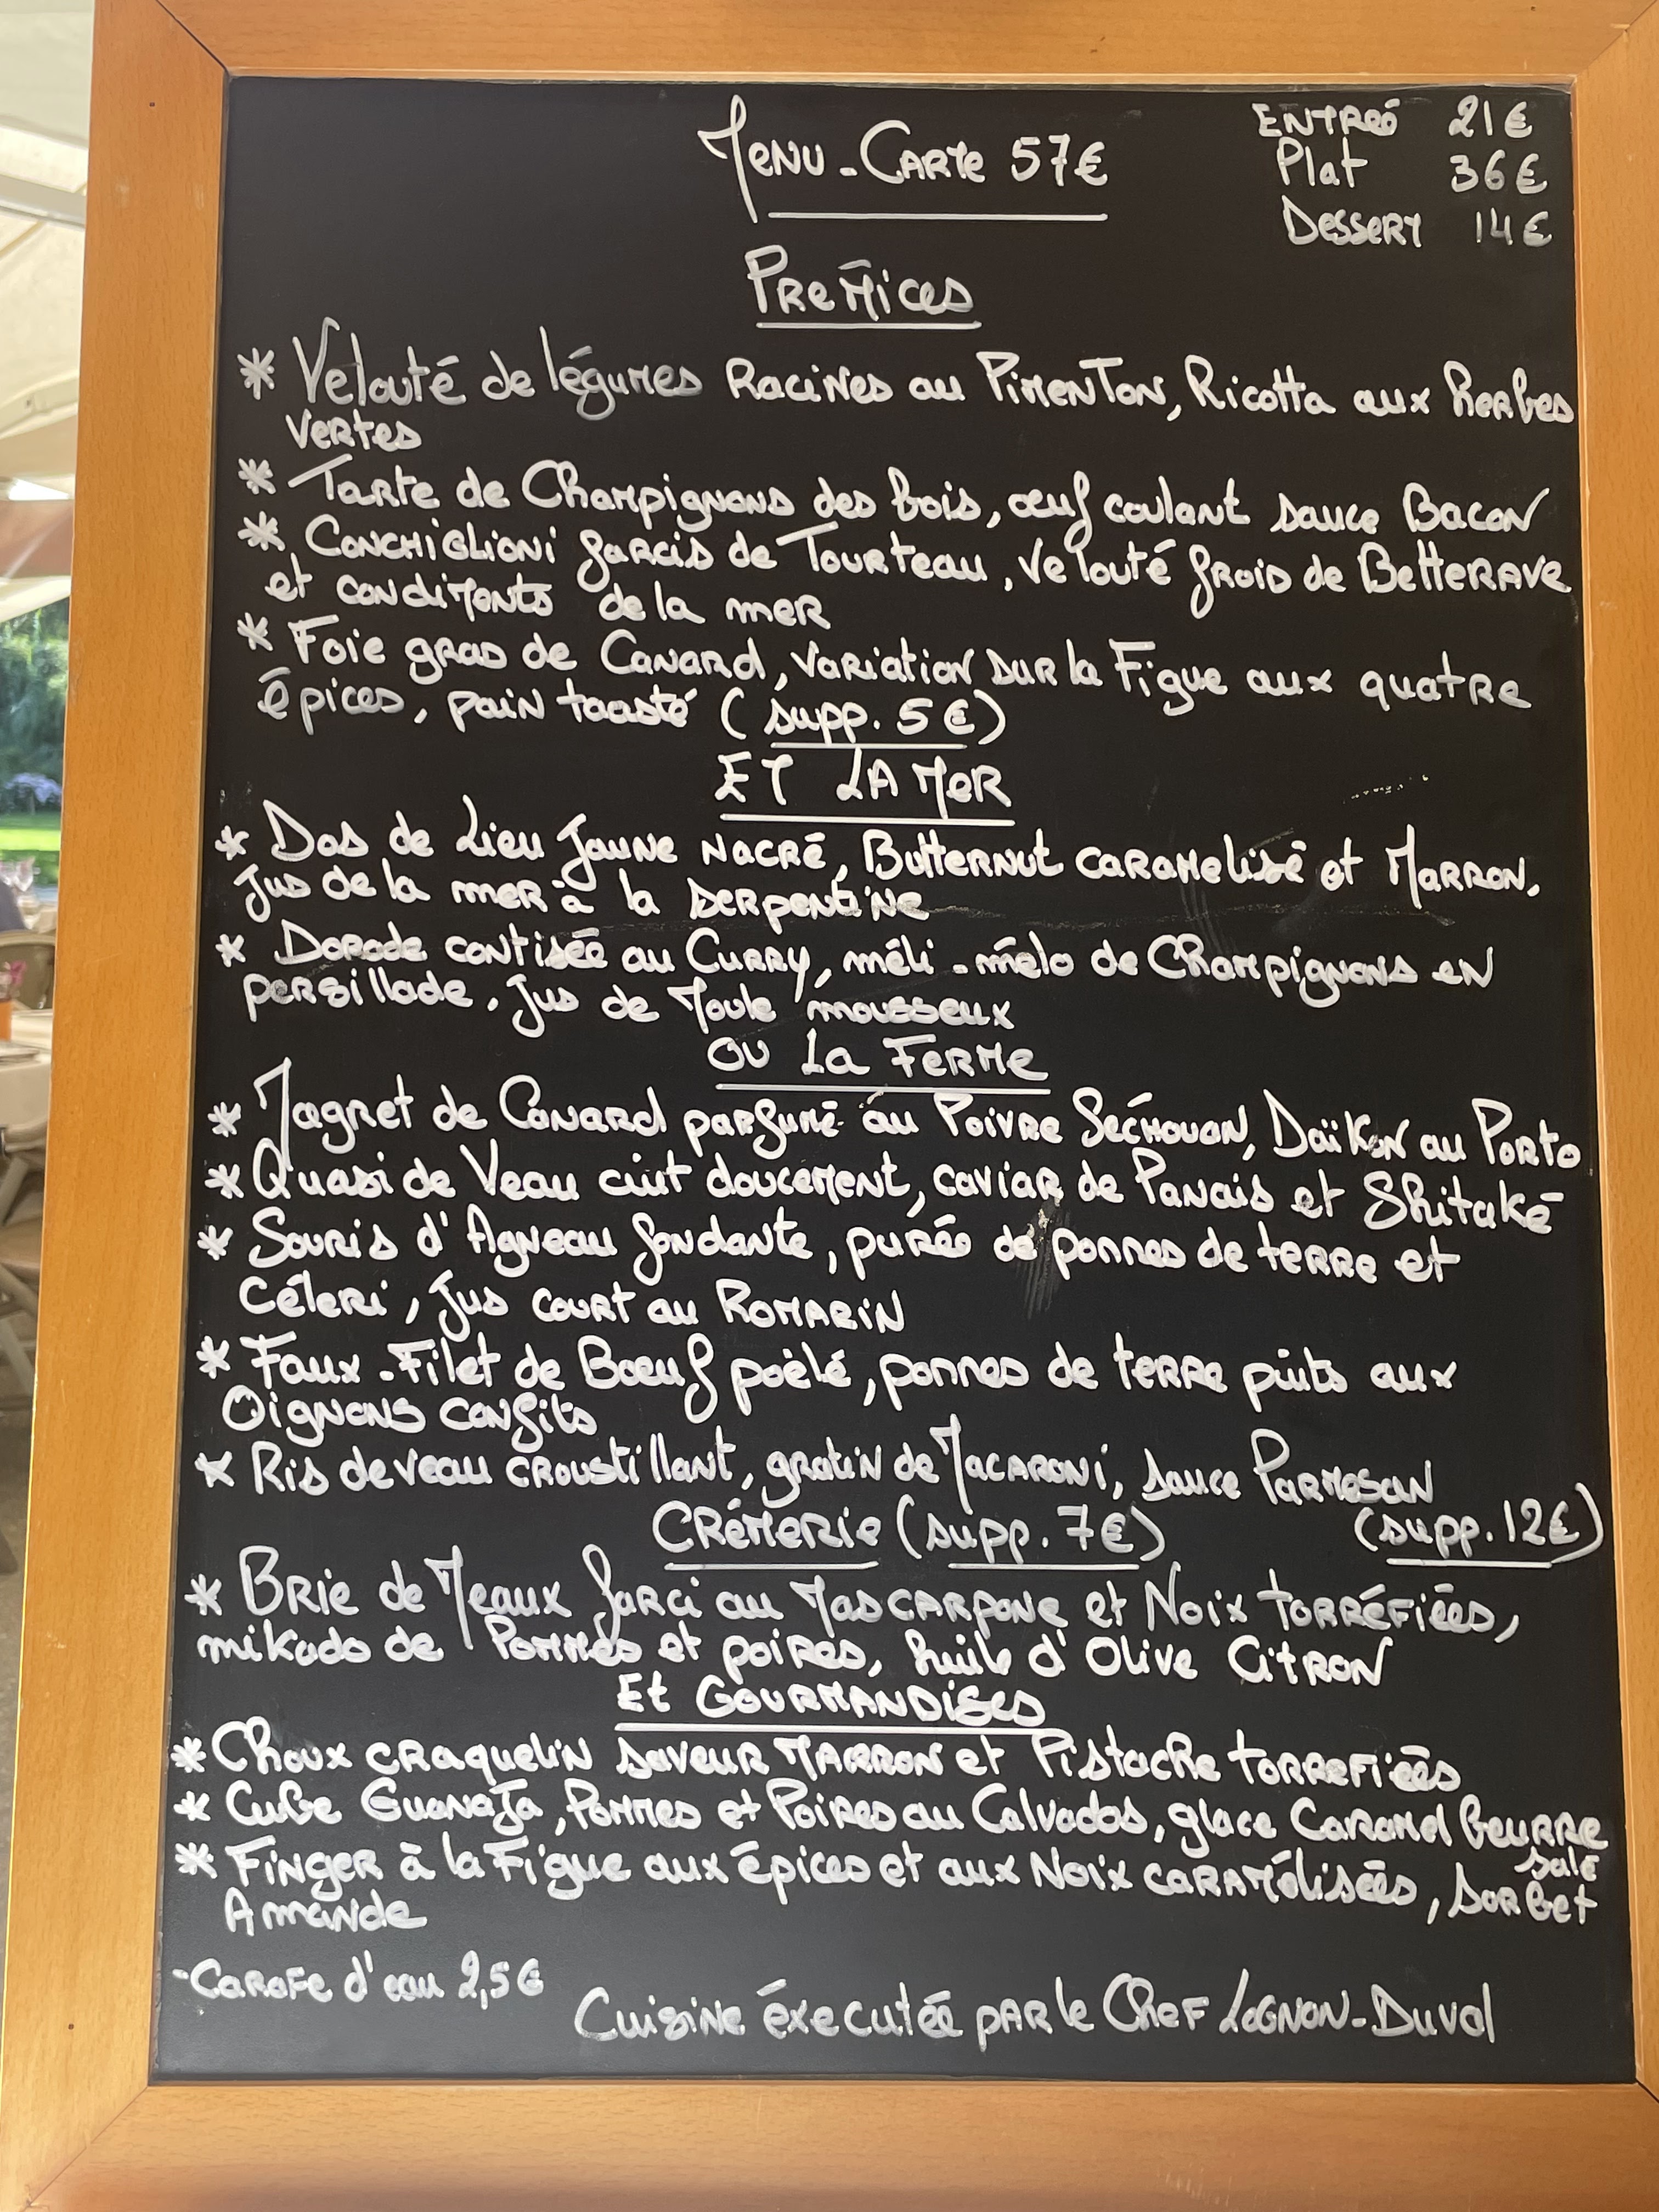 Menu-Carte 57€
Entreé 21€
Plat 36€
Dessert 14€
Premices
* Velouté de légumes Racines au Pimenton, Ricotta aux herbes
vertes
* Tarte de Champignons des bois, œuf coulant sauce Bacon
* Conchiglioni farcis de Tourteau, velouté froid de Betterave
et condiments de la mer
* Foie gras de Canard, variation sur la Figue aux quatre
épices, pain toasté (supp. 5€)
ET LA MER
* Dos de Lieu Jaune Nacré, Butternut caramelisé et Marron,
Jus de la mer à la serpentine
* Dorade contisée au Curry, méli-mélo de Champignons en
persillade, Jus de Moule mousseux
OU La Ferme
* Magret de Canard parfumé au Poivre Séchouan, Daïkon au Porto
* Quasi de Veau cuit doucement, caviar de Panais et Shitaké
* Souris d'Agneau fondante, purée de pommes de terre et
Céleri, Jus court au Romarin
* Faux-Filet de Bœuf poëlé, pommes de terre puits aux
Oignons confits
* Ris de veau croustillant, gratin de Macaroni, sauce Parmesan
(supp. 12€)
CRÉMERIE (supp. 7€)
* Brie de Meaux farci au Mascarpone et Noix torréfiées,
mikado de Pommes et poires, huile d'Olive Citron
Et Gourmandises
* Choux craquelin saveur Marron et Pistache torrefiées
* Cube Guanaja, Pommes et Poires au Calvados, glace Caramel beurre
salé
* Finger à la Figue aux épices et aux Noix caramélisées, sorbet
Amande
-Carafe d'eau 2,5€
Cuisine éxecutée par le Chef Lognon-Duval